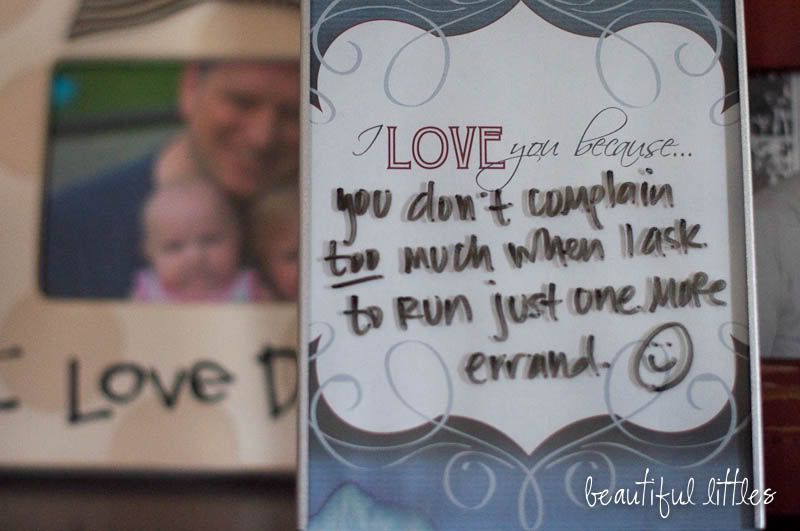 I LOVE you because...
you don't complain
too much when I ask
to run just one more
errand.
Love D
beautiful littles